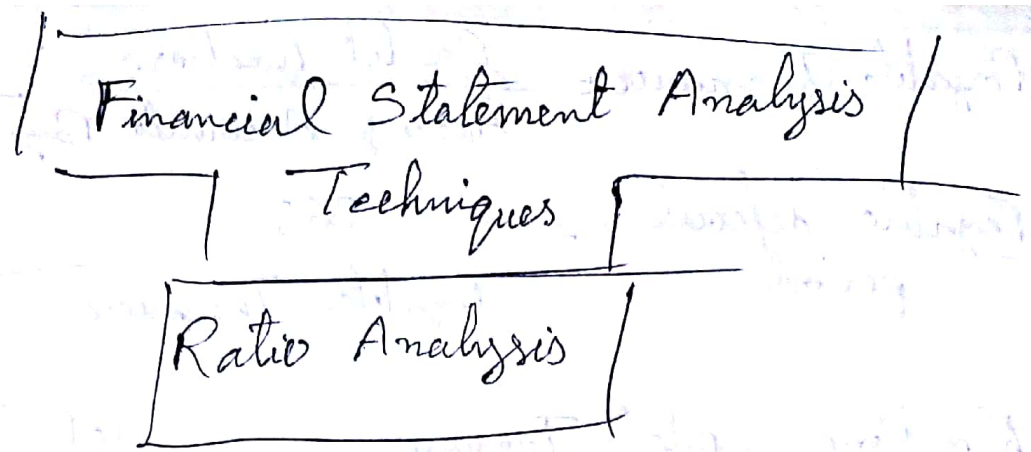 Financial Statement Analysis
Techniques
Ratio Analysis